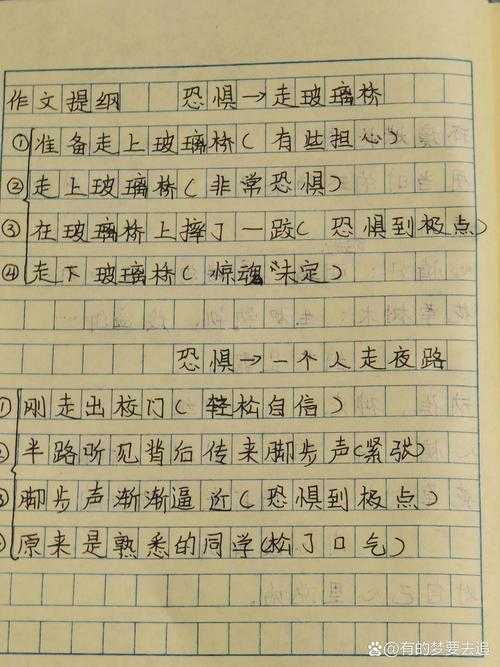 作文提纲 恐惧→走玻璃桥
①准备走上玻璃桥(有些担心)
②走上玻璃桥(非常恐惧)
③在玻璃桥上摔了一跤(恐惧到极点)
④走下玻璃桥(惊魂未定)
恐惧→一个人走夜路
①刚走出校门(轻松自信)
②半路听见背后传来脚步声(紧张)
③脚步声渐渐逼近(恐惧到极点)
④原来是熟悉的同学(松了口气)
@有的梦要去追